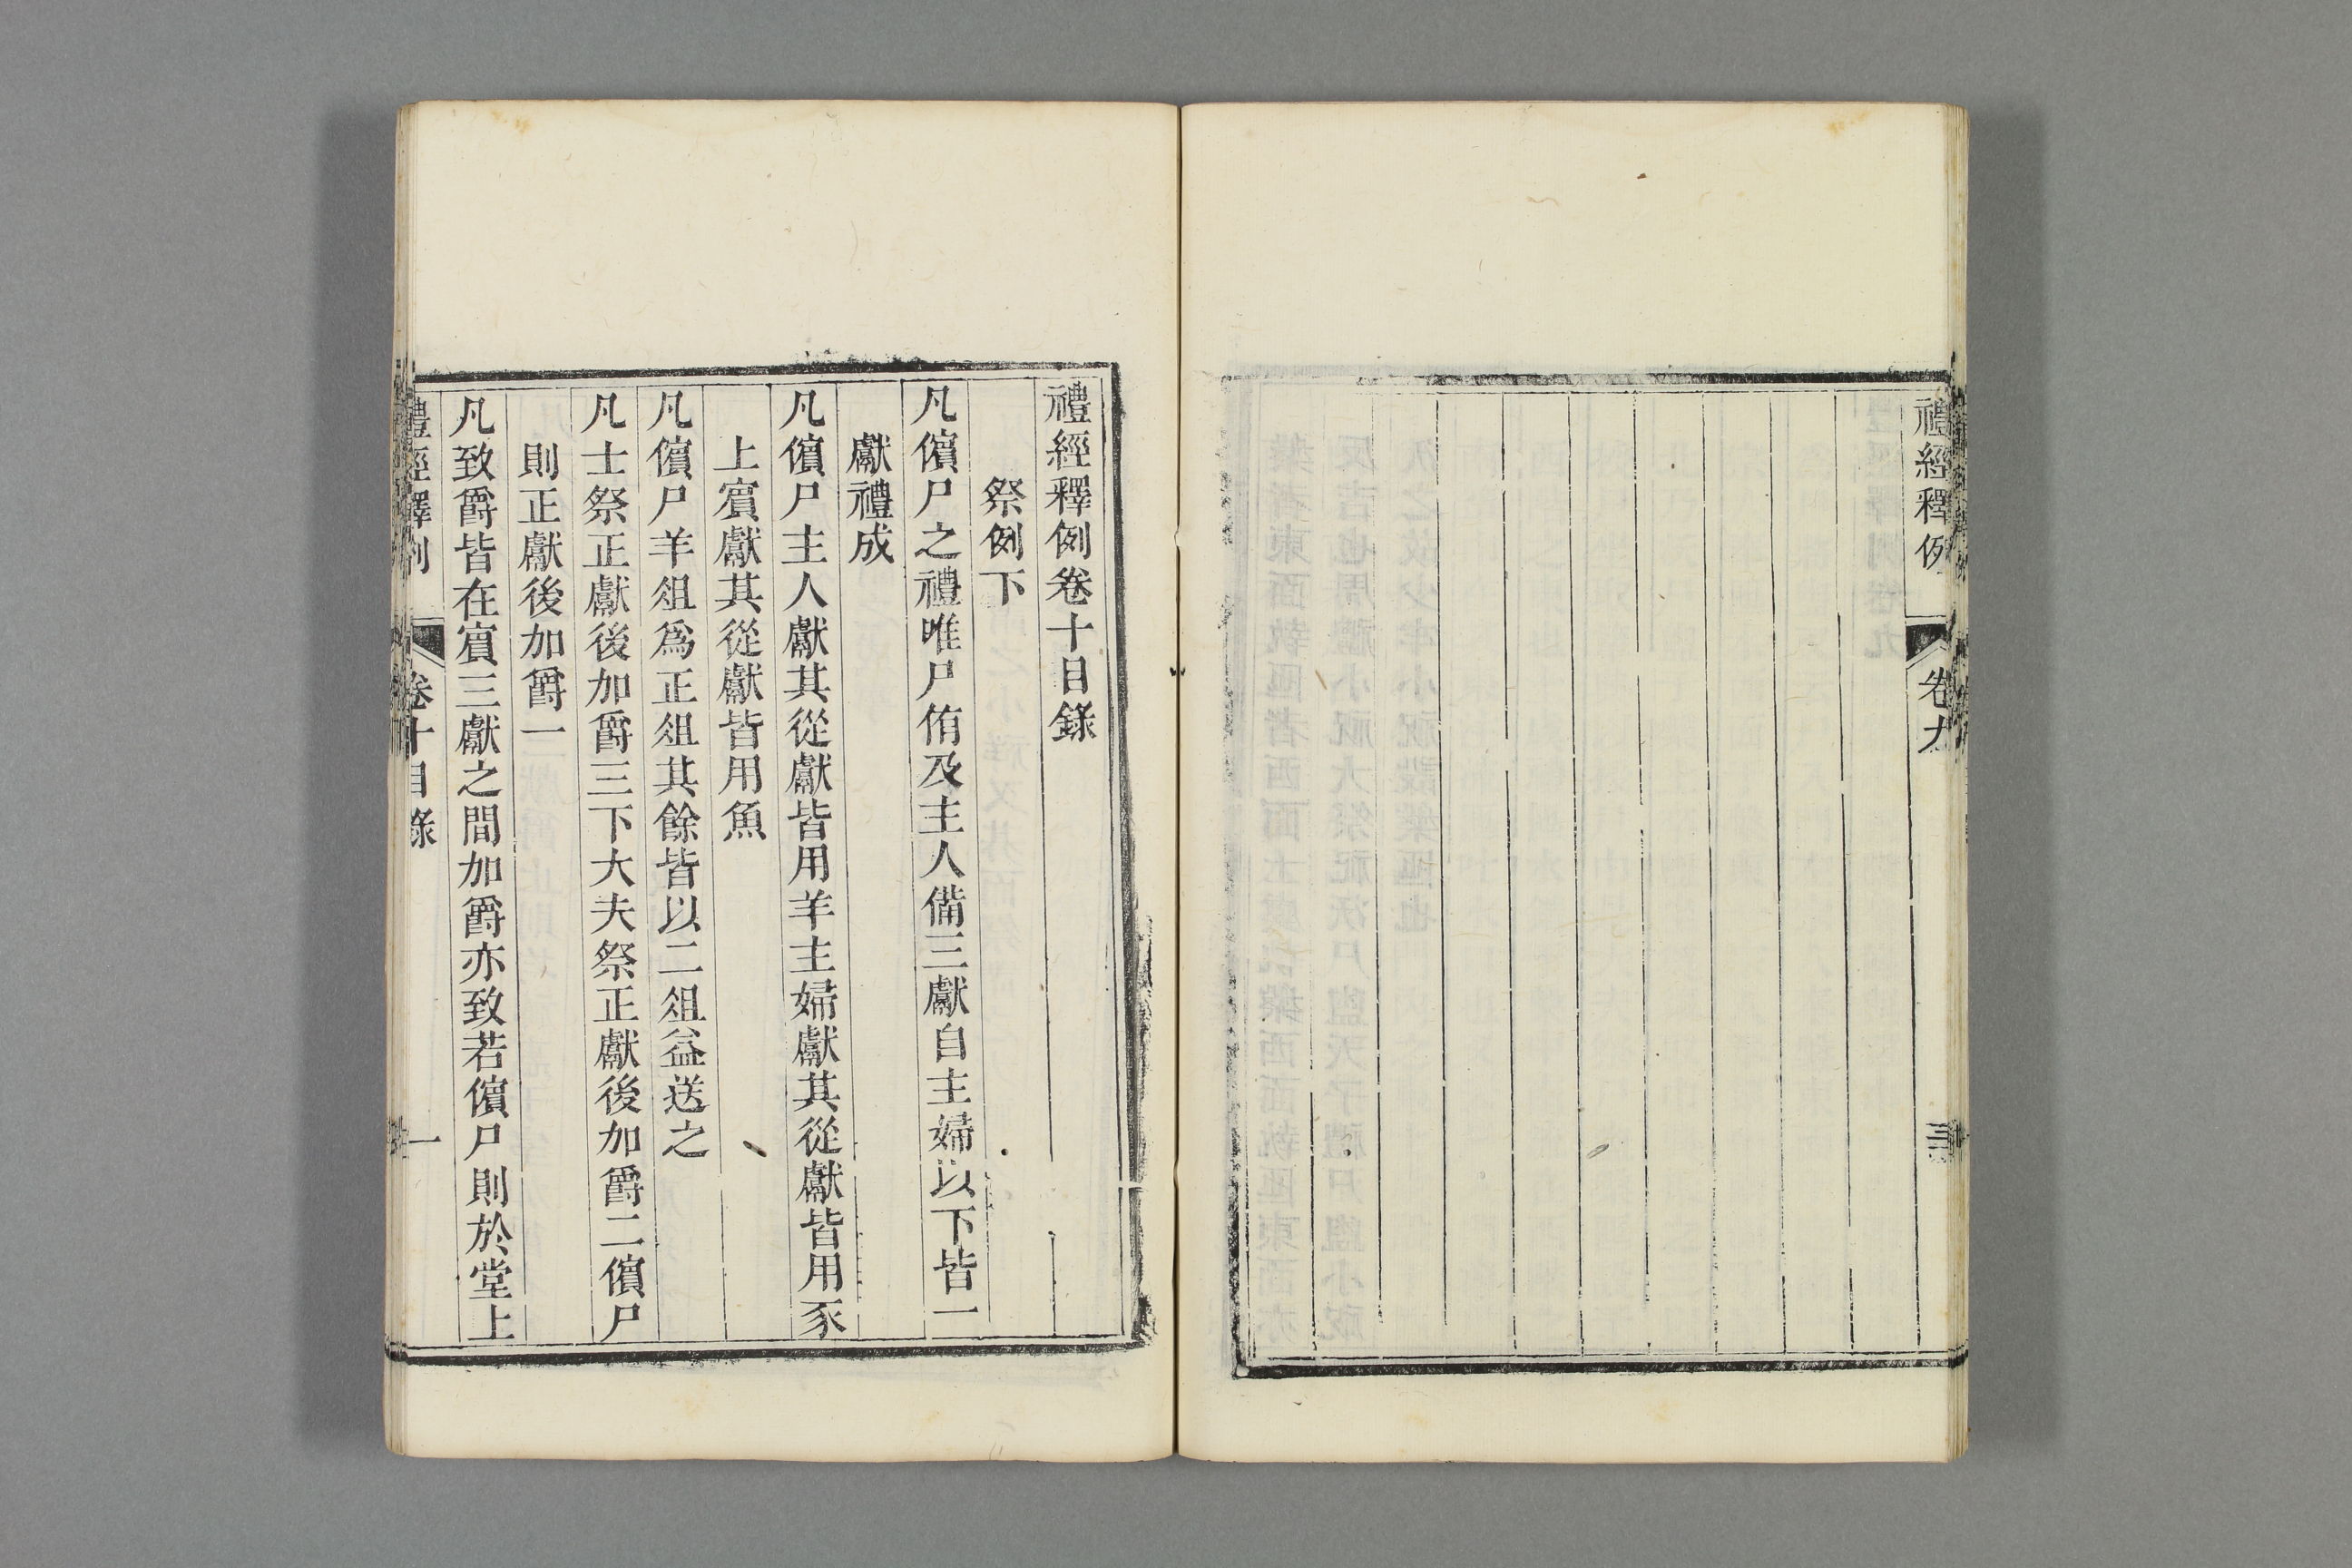 禮經釋例
卷九
禮經釋例卷十目錄
祭例下
凡儐尸之禮唯尸侑及主人備三獻自主婦以下皆一
獻禮成
凡儐尸主人獻其從獻皆用羊主婦獻其從獻皆用豕
上賓獻其從獻皆用魚
凡儐尸羊俎爲正俎其餘皆以二俎益送之
凡士祭正獻後加爵三下大夫祭正獻後加爵二儐尸
則正獻後加爵一
凡致爵皆在賓三獻之間加爵亦致若儐尸則於堂上
禮經釋例
卷十目錄
一